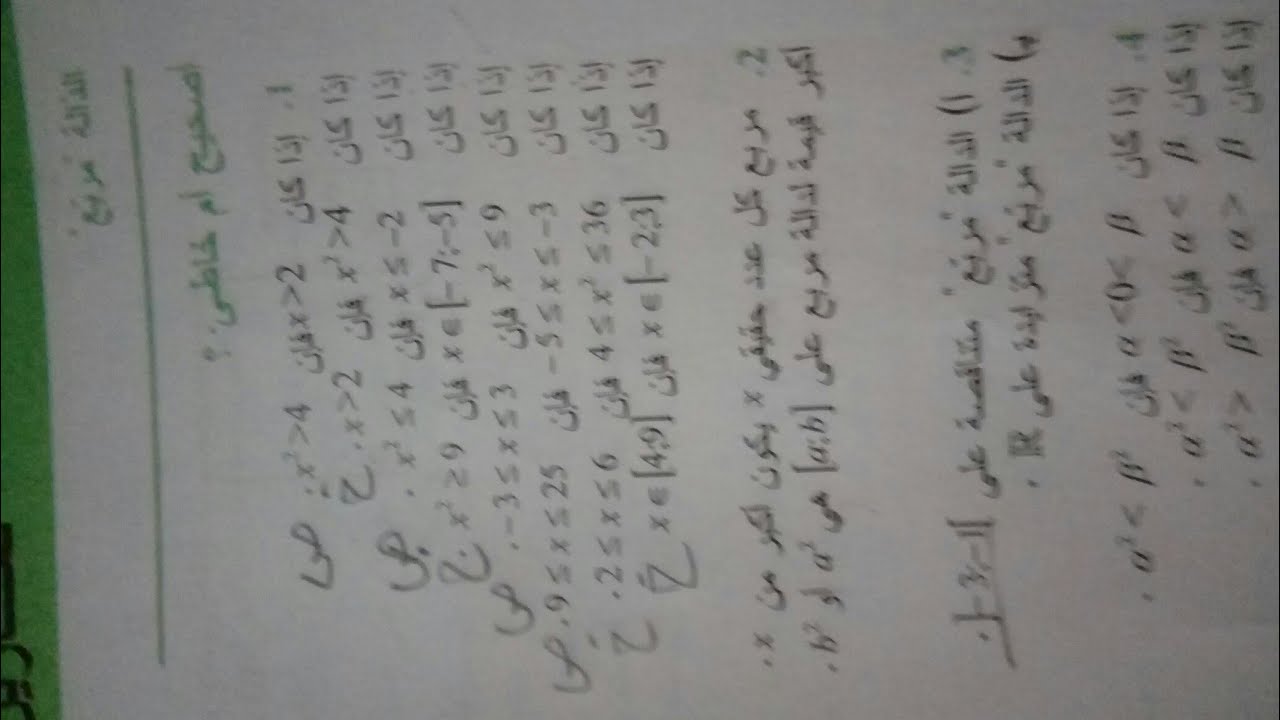 الدالة "مربع"
أصحيح أم خاطئ ؟
1. إذا كان x>2 فإن x²>4. ص
إذا كان x²>4 فإن x>2. خ
إذا كان x≤−2 فإن x²≤4. ص
إذا كان x∈[−7;−5] فإن x²≥9. خ
إذا كان x²≤9 فإن −3≤x≤3. ص
إذا كان −5≤x≤−3 فإن 9≤x≤25. ص
إذا كان 4≤x²≤36 فإن 2≤x≤6. خ
إذا كان x∈[−2;3] فإن x∈[4;9] خ
2. مربع كل عدد حقيقي x يكون أكبر من x.
أكبر قيمة لدالة مربع على [a;b] هي a² أو b².
3. ا) الدالة "مربع" متناقصة على [−3;−1].
ب) الدالة "مربع" متزايدة على ℝ.
4. إذا كان α<0<β فإن α²<β².
إذا كان α<β فإن α²<β².
إذا كان α>β فإن α²>β².